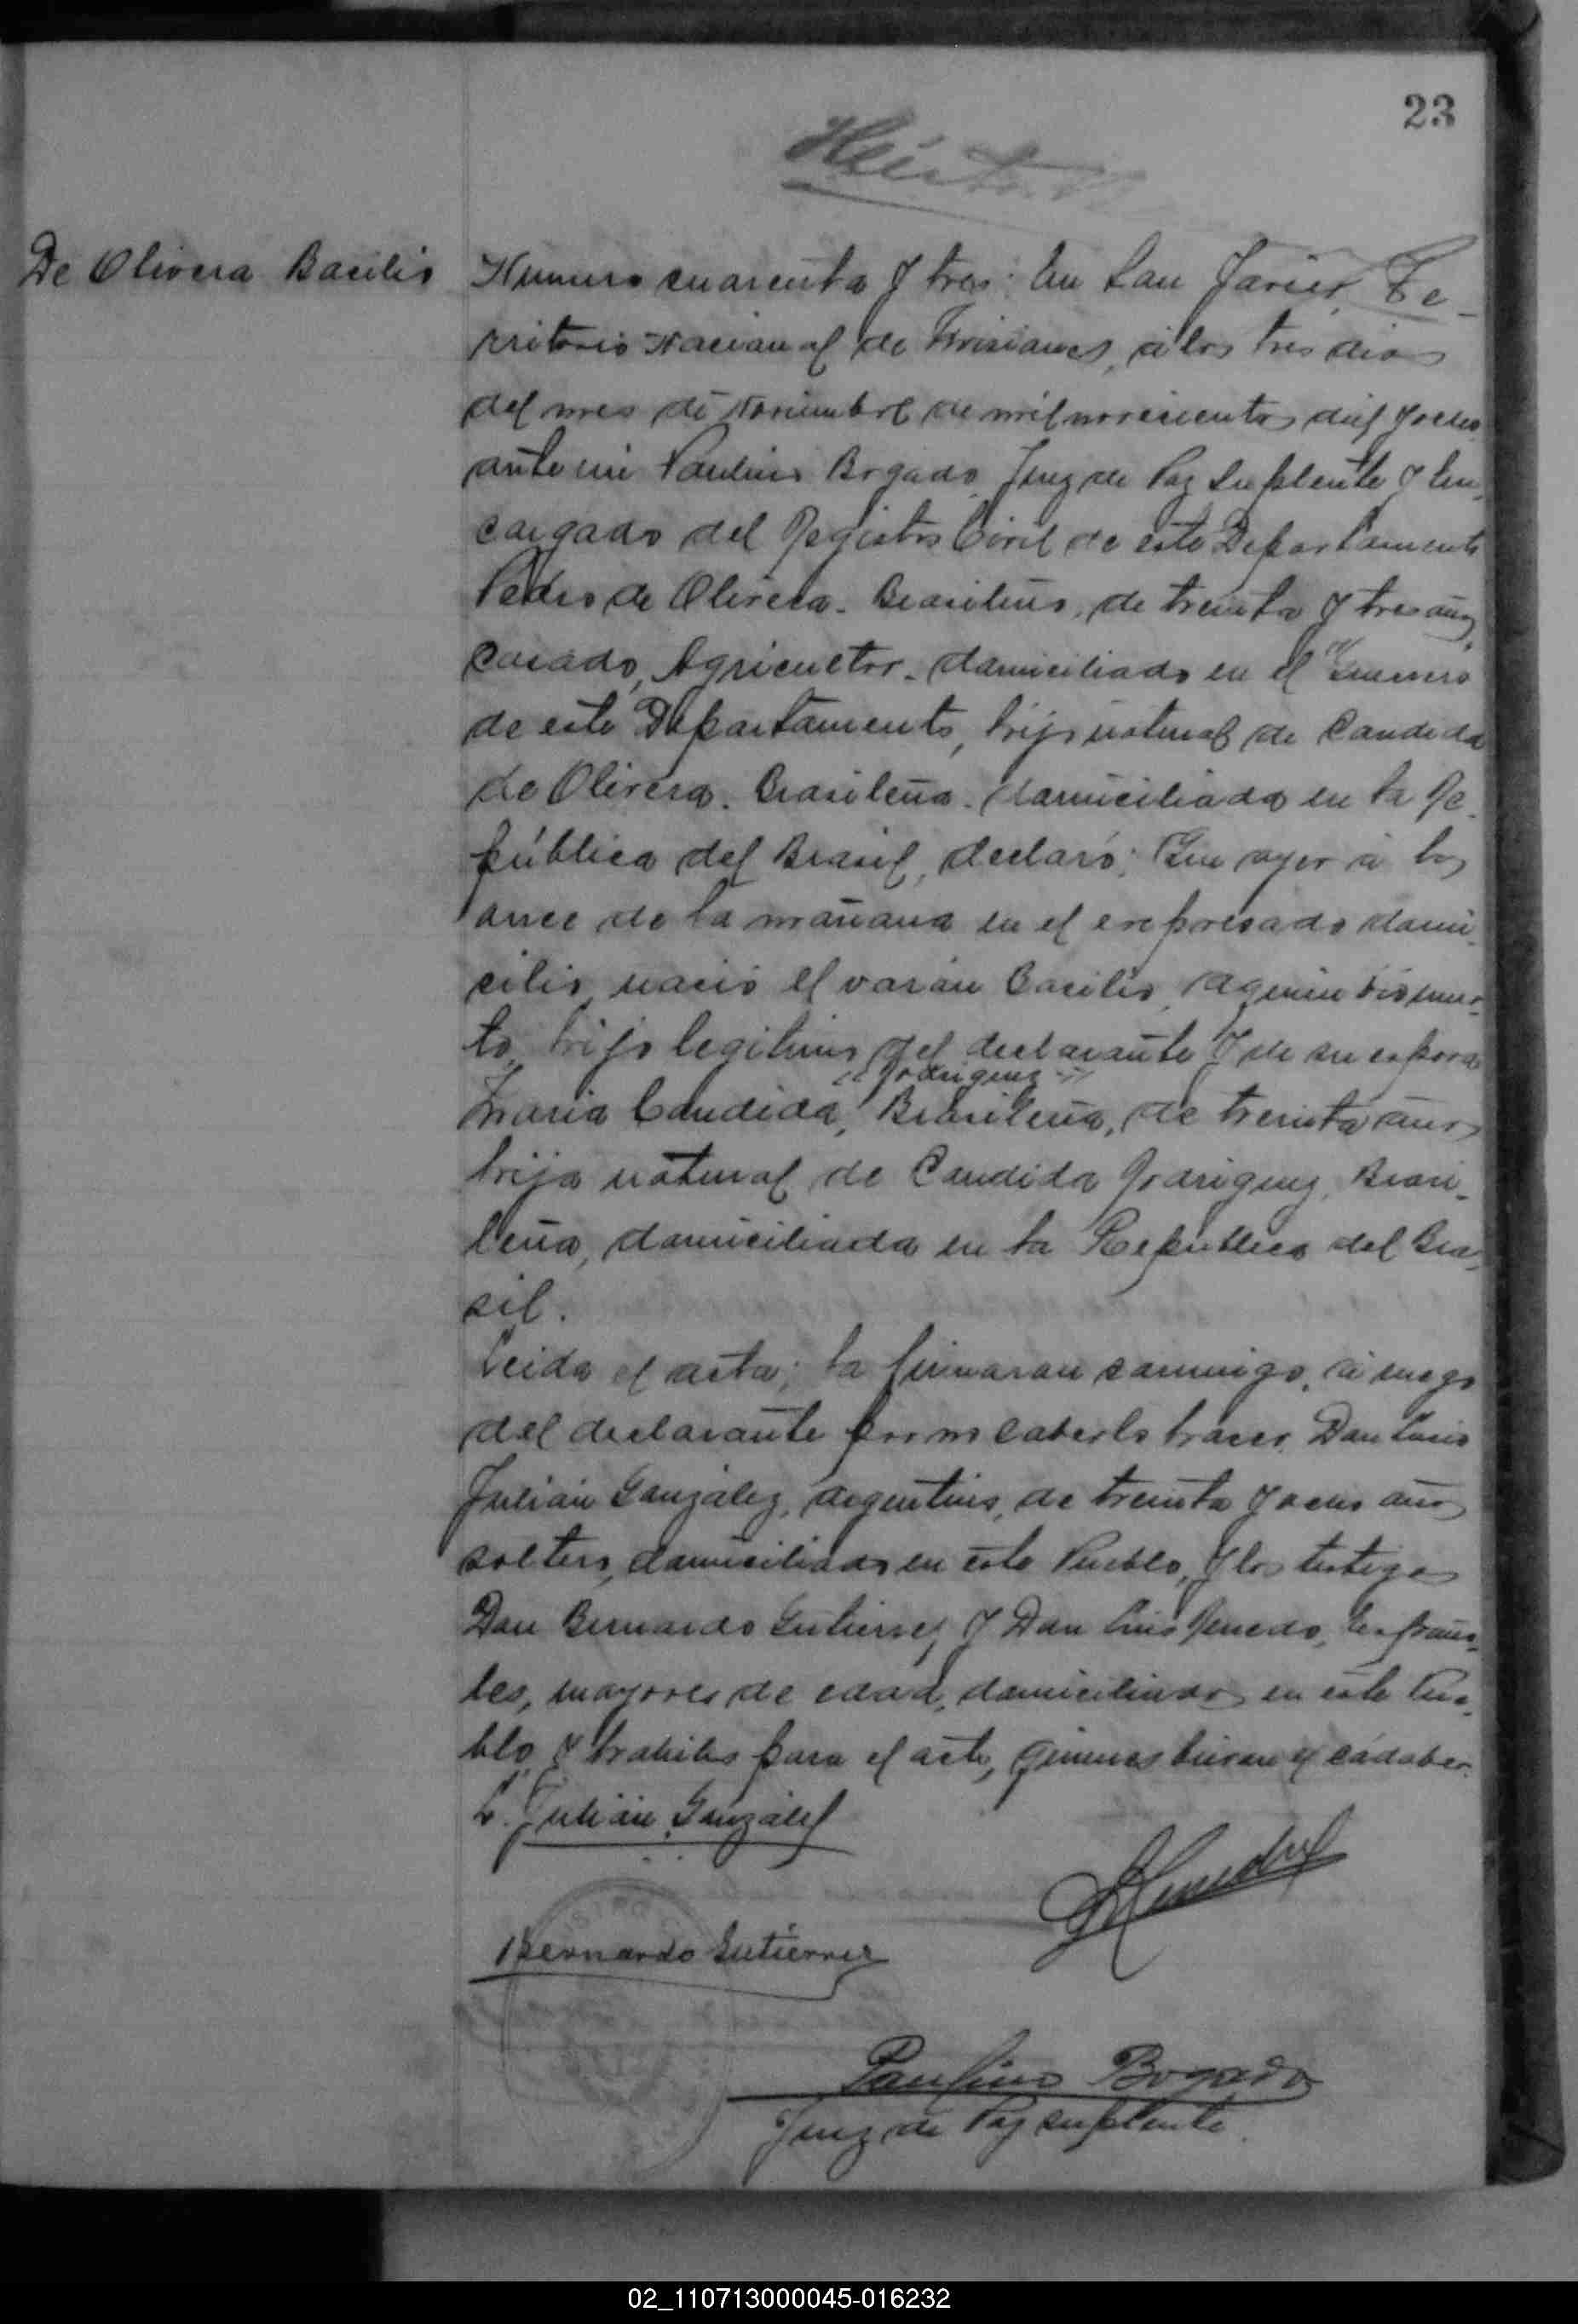 23
De Olivera Basilio
Numero cuarenta y tres: En San Javier, Te-
rritorio Nacional de Misiones, á los tres dias
del mes de Noviembre de mil novecientos diez y ocho
ante mi Paulino Bogado, Juez de Paz Suplente y En-
cargado del Registro Civil de este Departamento
Pedro de Olivera. Brasileño, de treinta y tres años,
Casado, Agricultor. domiciliado en el
de este Departamento, hijo natural de Candida
de Olivera. Brasileña. domiciliada en la Re-
pública del Brasil, declaró: Que ayer á las
once de la mañana en el expresado domi-
cilio, nació el varón Basilio,
to, hijo legitimo del declarante y de su esposa
"Rodriguez"
Maria Candida, Brasileña, de treinta años
hija natural de Candida Rodriguez, Brasi-
leña, domiciliada en la República del Bra-
sil.
Leida el acta; la firmaron conmigo, á ruego
del declarante por no saberlo hacer, Don Luis
Julián González, Argentino, de treinta y ocho años
soltero, domiciliado en este Pueblo, y los testigos
Don Bernardo Gutierrez y Don Luis Renedo, Españo-
les, mayores de edad, domiciliados en este Pue-
blo, y habiles para el acto, quienes vieron el cádaber.
L. Julián Gonzalez
Bernardo Gutierrez
Paulino Bogado
Juez de Paz suplente.
02_110713000045-016232